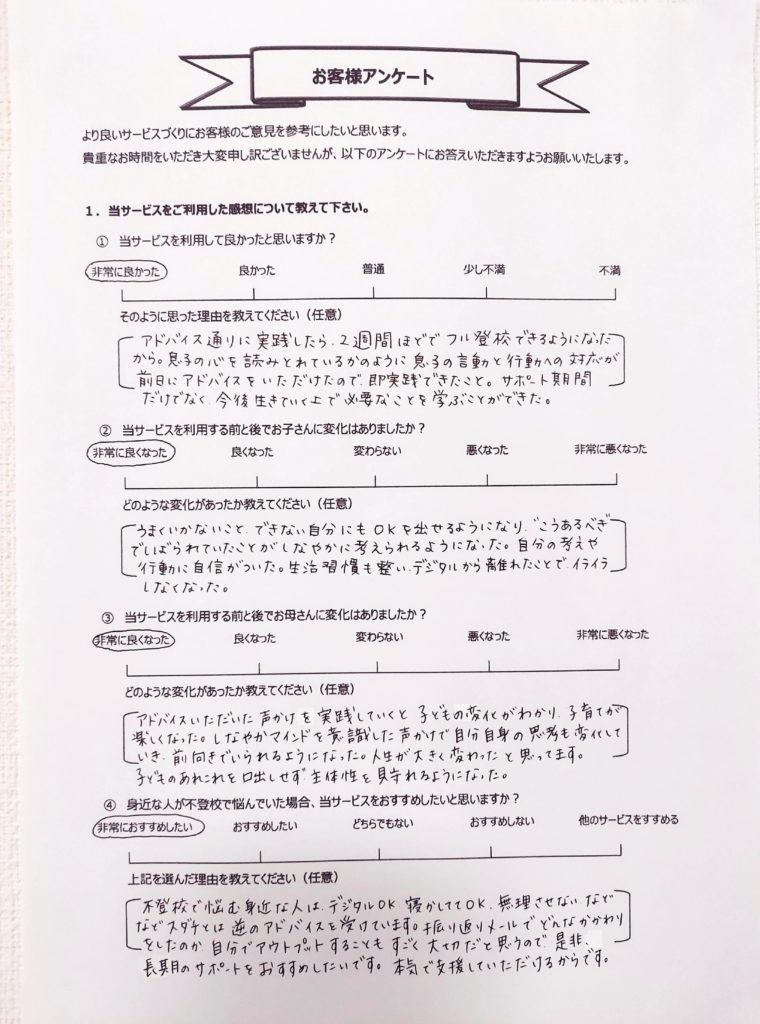 お客様アンケート
より良いサービスづくりにお客様のご意見を参考にしたいと思います。
貴重なお時間をいただき大変申し訳ございませんが、以下のアンケートにお答えいただきますようお願いいたします。
1．当サービスをご利用した感想について教えて下さい。
① 当サービスを利用して良かったと思いますか？
非常に良かった 良かった 普通 少し不満 不満
そのように思った理由を教えてください（任意）
アドバイス通りに実践したら、2週間ほどでフル登校できるようになった
から。息子の心を読みとれているかのように息子の言動と行動への対応が
前日にアドバイスをいただけたので、即実践できたこと。サポート期間
だけでなく、今後生きていく上で必要なことを学ぶことができた。
② 当サービスを利用する前と後でお子さんに変化はありましたか？
非常に良くなった 良くなった 変わらない 悪くなった 非常に悪くなった
どのような変化があったか教えてください（任意）
うまくいかないこと、できない自分にもOKを出せるようになり、"こうあるべき"
でしばられていたことがしなやかに考えられるようになった。自分の考えや
行動に自信がついた。生活習慣も整い、デジタルから離れたことで、イライラ
しなくなった。
③ 当サービスを利用する前と後でお母さんに変化はありましたか？
非常に良くなった 良くなった 変わらない 悪くなった 非常に悪くなった
どのような変化があったか教えてください（任意）
アドバイスいただいた声かけを実践していくと子どもの変化がわかり、子育てが
楽しくなった。しなやかマインドを意識した声かけで自分自身の思考も変化して
いき、前向きでいられるようになった。人生が大きく変わったと思ってます。
子どものあれこれを口出しせず主体性を見守れるようになった。
④ 身近な人が不登校で悩んでいた場合、当サービスをおすすめしたいと思いますか？
非常におすすめしたい おすすめしたい どちらでもない おすすめしない 他のサービスをすすめる
上記を選んだ理由を教えてください（任意）
不登校で悩む身近な人は、デジタルOK、寝かしててOK、無理させない、など
などスダチとは逆のアドバイスを受けています。振り返りメールでどんなかかわり
をしたのか、自分でアウトプットすることもすごく大切だと思うので、是非、
長期のサポートをおすすめしたいです。本気で支援していただけるからです。